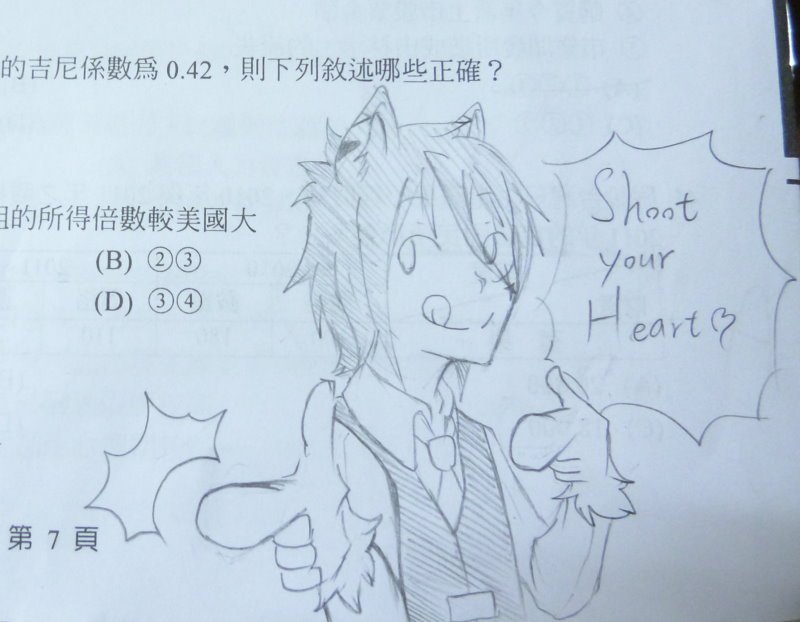 的吉尼係數為 0.42，則下列敘述哪些正確？
組的所得倍數較美國大
(B) ②③
(D) ③④
Shoot
your
Heart♡
第 7 頁